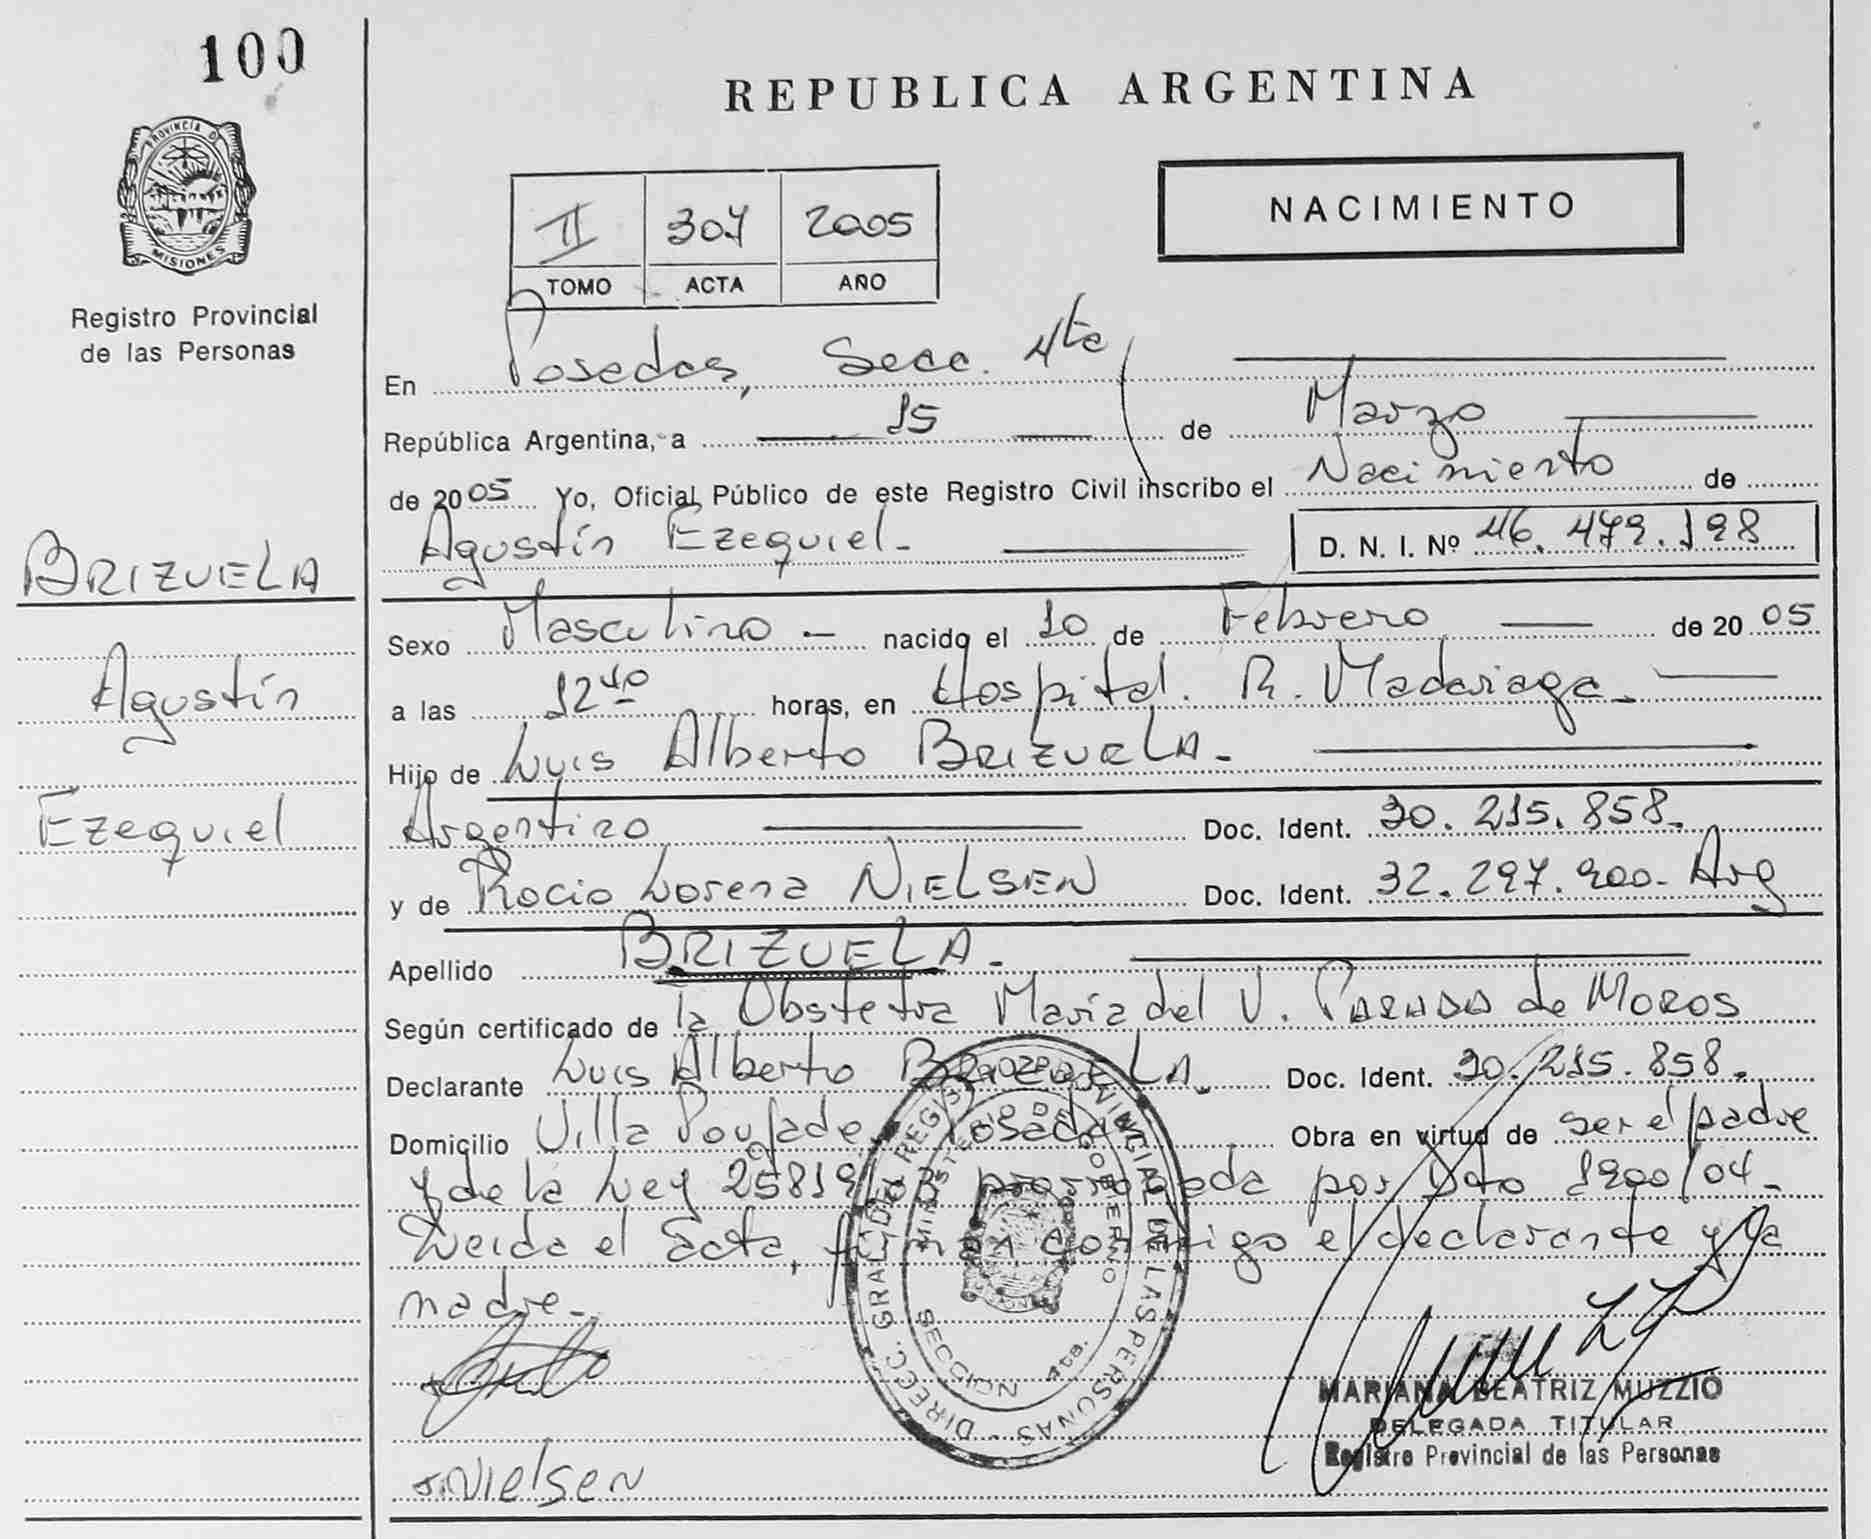 100
REPUBLICA ARGENTINA
PROVINCIA D
MISIONES
Registro Provincial
de las Personas
II 307 2005
TOMO ACTA AÑO
NACIMIENTO
En Posadas, Secc. 4ta
República Argentina, a 15 de Marzo
de 2005 Yo, Oficial Público de este Registro Civil inscribo el Nacimiento de
Agustín Ezequiel. D. N. I. Nº 46.479.198
BRIZUELA
Agustín
Ezequiel
Sexo Masculino - nacido el 10 de Febrero de 2005
a las 12 40 horas, en Hospital. R. Madariaga.
Hijo de Luis Alberto BRIZUELA.
Argentino Doc. Ident. 30.215.858.
y de Rocio Lorena NIELSEN Doc. Ident. 32.297.900. Arg
Apellido BRIZUELA.
Según certificado de la Obstetra María del V. PARADA de MOROS
Declarante Luis Alberto BRIZUELA. Doc. Ident. 30.215.858.
Domicilio Villa Poujade, Posadas Obra en virtud de ser el padre
y de la Ley 25819/03 prorrogada por Dto 1900/04.
Leida el acta, firman conmigo el declarante y la
madre.
DIRECC. GRAL DEL REGISTRO PROVINCIAL DE LAS PERSONAS
MINISTERIO DE GOBIERNO
SECCION 4ta.
MARIANA BEATRIZ MUZZIO
DELEGADA TITULAR
Registro Provincial de las Personas
Nielsen